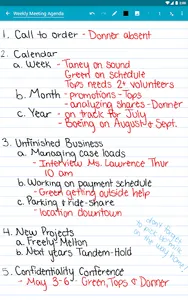 Weekly Meeting Agenda
1. Call to order - Donner absent
2. Calendar
a. Week - Taney on sound
Green on schedule
Tops needs 2+ volunteers
b. Month - promotions - Tops
- analyzing shares - Donner
c. Year - on track for July
- Boeing on August & Sept.
3. Unfinished Business
a. Managing case loads
- Interview Ms. Lawrence Thur
10 am
b. Working on payment schedule
- Green getting outside help
c. Parking & ride-share
- location downtown
don't forget
to pick up
on the way home
4. New Projects
a. Freely Melton
b. Next years Tandem-Hold
5. Confidentiality Conference
- May 3-6 - Green, Tops & Donner